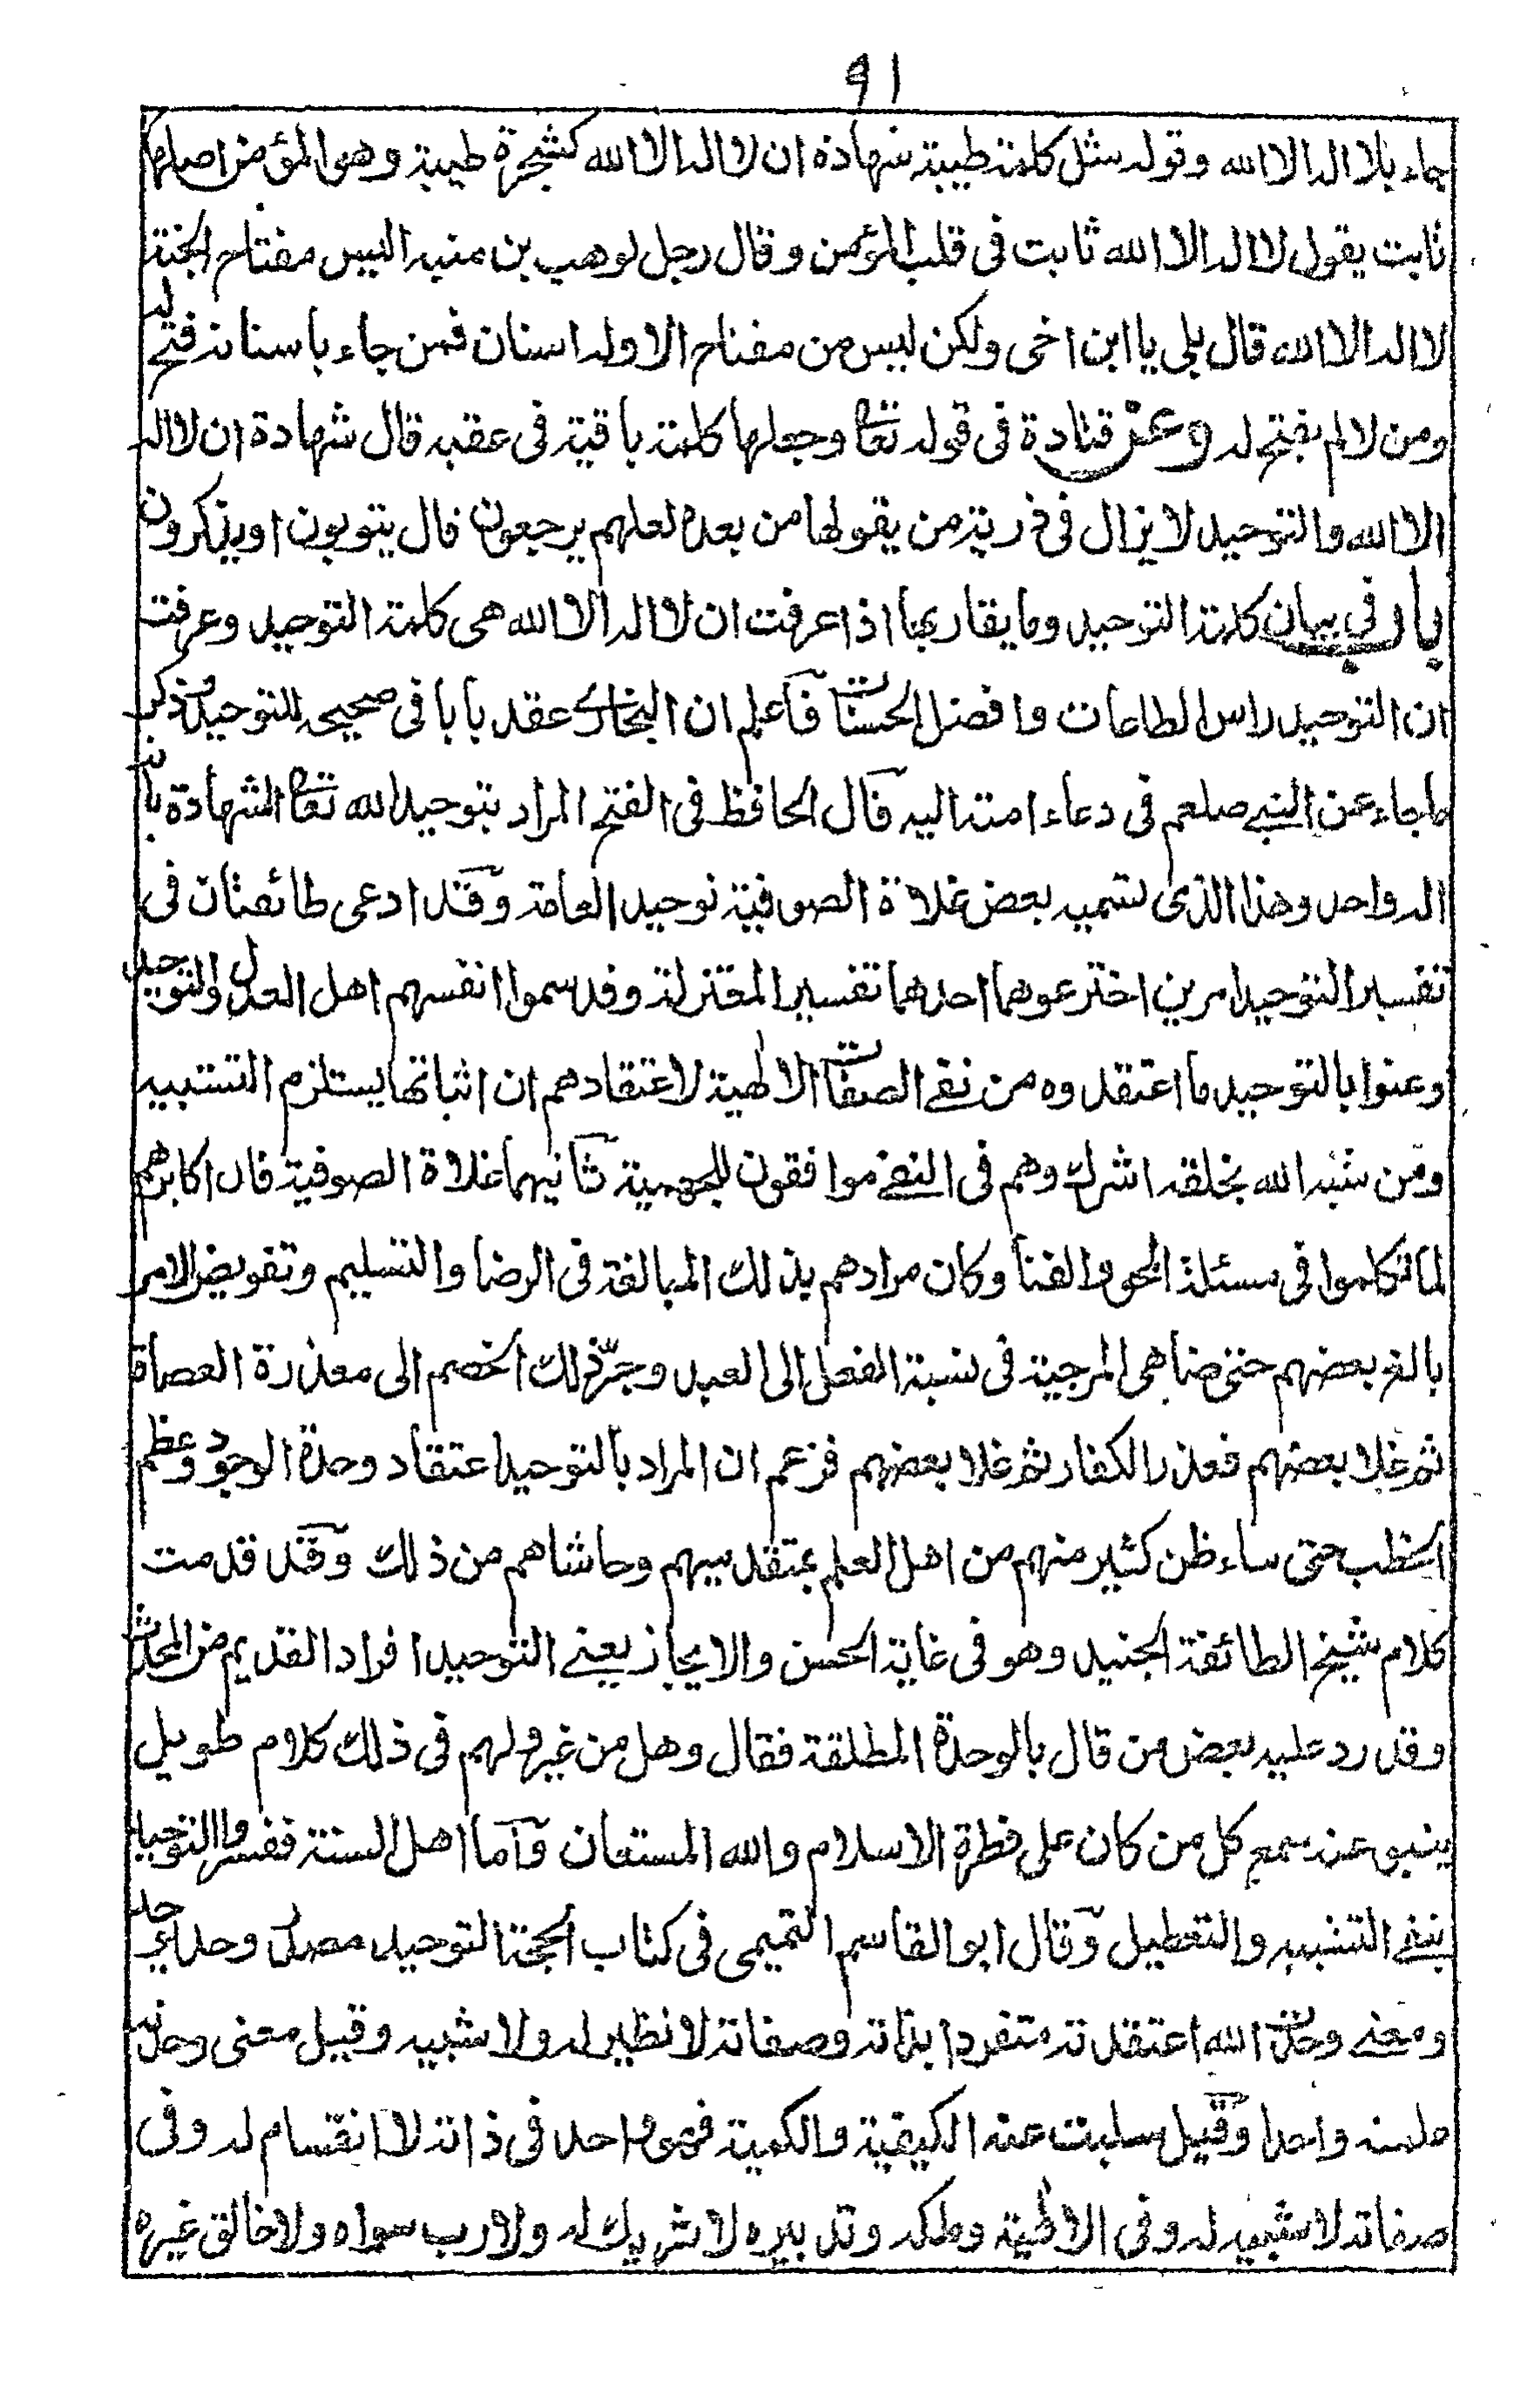 ٩١
جاء بلا اله الا الله وقوله مثل كلمة طيبة شهادة ان لا اله الا الله كشجرة طيبة وهو المؤمن اصلها
ثابت يقول لا اله الا الله ثابت فى قلب المؤمن وقال رجل لوهب بن منبه اليس مفتاح الجنة
لا اله الا الله قال بلى يا ابن اخى ولكن ليس من مفتاح الا وله اسنان فمن جاء باسنانه فتح له
ومن لا لم يفتح له وعن قتادة فى قوله تعا وجعلها كلمة باقية فى عقبه قال شهادة ان لا اله
الا الله والتوحيد لا يزال فى ذريته من يقولها من بعده لعلهم يرجعون قال يتوبون او يذكرون
باب فى بيان كلمة التوحيد وما يقاربها اذا عرفت ان لا اله الا الله هى كلمة التوحيد وعرفت
ان التوحيد راس الطاعات وافضل الحسنات فاعلم ان البخارى عقد بابا فى صحيحه للتوحيد وذكر
ما جاء عن النبى صلعم فى دعاء امته اليه قال الحافظ فى الفتح المراد بتوحيد الله تعا الشهادة بانه
اله واحد وهذا الذى تسميه بعض غلاة الصوفية توحيد العامة وقد ادعى طائفتان فى
تفسير التوحيد امرين اخترعوهما احدهما تفسير المعتزلة وقد سموا انفسهم اهل العدل والتوحيد
وعنوا بالتوحيد ما اعتقدوه من نفى الصفات الالهية لاعتقادهم ان اثباتها يستلزم التشبيه
ومن شبه الله بخلقه اشرك وهم فى النفى موافقون للجهمية ثانيهما غلاة الصوفية فان اكابرهم
لما تكلموا فى مسئلة المحو والفنا وكان مرادهم بذلك المبالغة فى الرضا والتسليم وتفويض الامر
بالغ بعضهم حتى ضاهى المرجية فى نسبة الفعل الى العبد وجرّ ذلك بعضهم الى معذرة العصاة
ثم غلا بعضهم فعذر الكفار ثم غلا بعضهم فزعم ان المراد بالتوحيد اعتقاد وحدة الوجود وعظم
الخطب حتى ساء ظن كثير منهم من اهل العلم بمتقدميهم وحاشاهم من ذلك وقد قدمت
كلام شيخ الطائفة الجنيد وهو فى غاية الحسن والايجاز يعنى التوحيد افراد القديم من المحدث
وقد رد عليه بعض من قال بالوحدة المطلقة فقال وهل من غير ولهم فى ذلك كلام طويل
ينبو عنه سمع كل من كان على فطرة الاسلام والله المستعان واما اهل السنة ففسروا التوحيد
بنفى التشبيه والتعطيل وقال ابو القاسم التميمى فى كتاب الحجة التوحيد مصدر وحد يوحد
ومعنى وحدت الله اعتقدته متفردا بذاته وصفاته لا نظير له ولا شبيه وقيل معنى وحدته
علمته واحدا وقيل سلبت عنه الكيفية والكمية فهو واحد فى ذاته لا انقسام له وفى
صفاته لا شبيه له وفى الالهية وملكه وتدبيره لا شريك له ولا رب سواه ولا خالق غيره